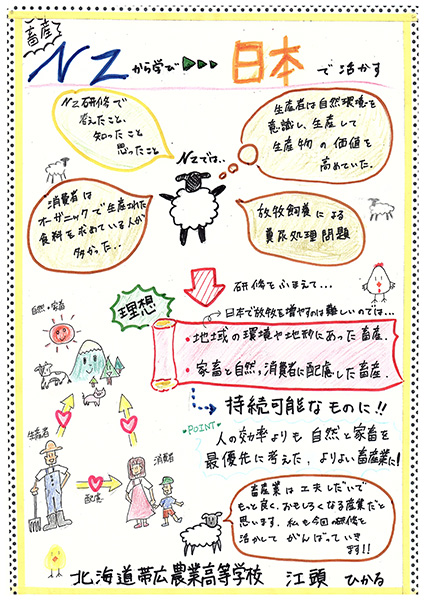 畜産
NZから学び▶▶▶日本で活かす
NZ研修で
考えたこと、
知ったこと
思ったこと
NZでは..
生産者は自然環境を
意識し、生産して
生産物の価値を
高めていた.
消費者は
オーガニックで生産された
食料を求めている人が
多かった..
放牧飼養による
糞尿処理問題
研修をふまえて...
理想
日本で放牧を増やすのは難しいのでは...
・地域の環境や地形にあった畜産.
・家畜と自然,消費者に配慮した畜産.
持続可能なものに!!
POINT
人の効率よりも自然と家畜を
最優先に考えた,よりよい畜産業に!
自然・家畜
生産者
消費者
配慮
畜産業は工夫しだいで
もっと良く、おもしろくなる産業だと
思います. 私も今回の研修を
活かしてがんばっていき
ます!!
北海道帯広農業高等学校 江頭 ひかる